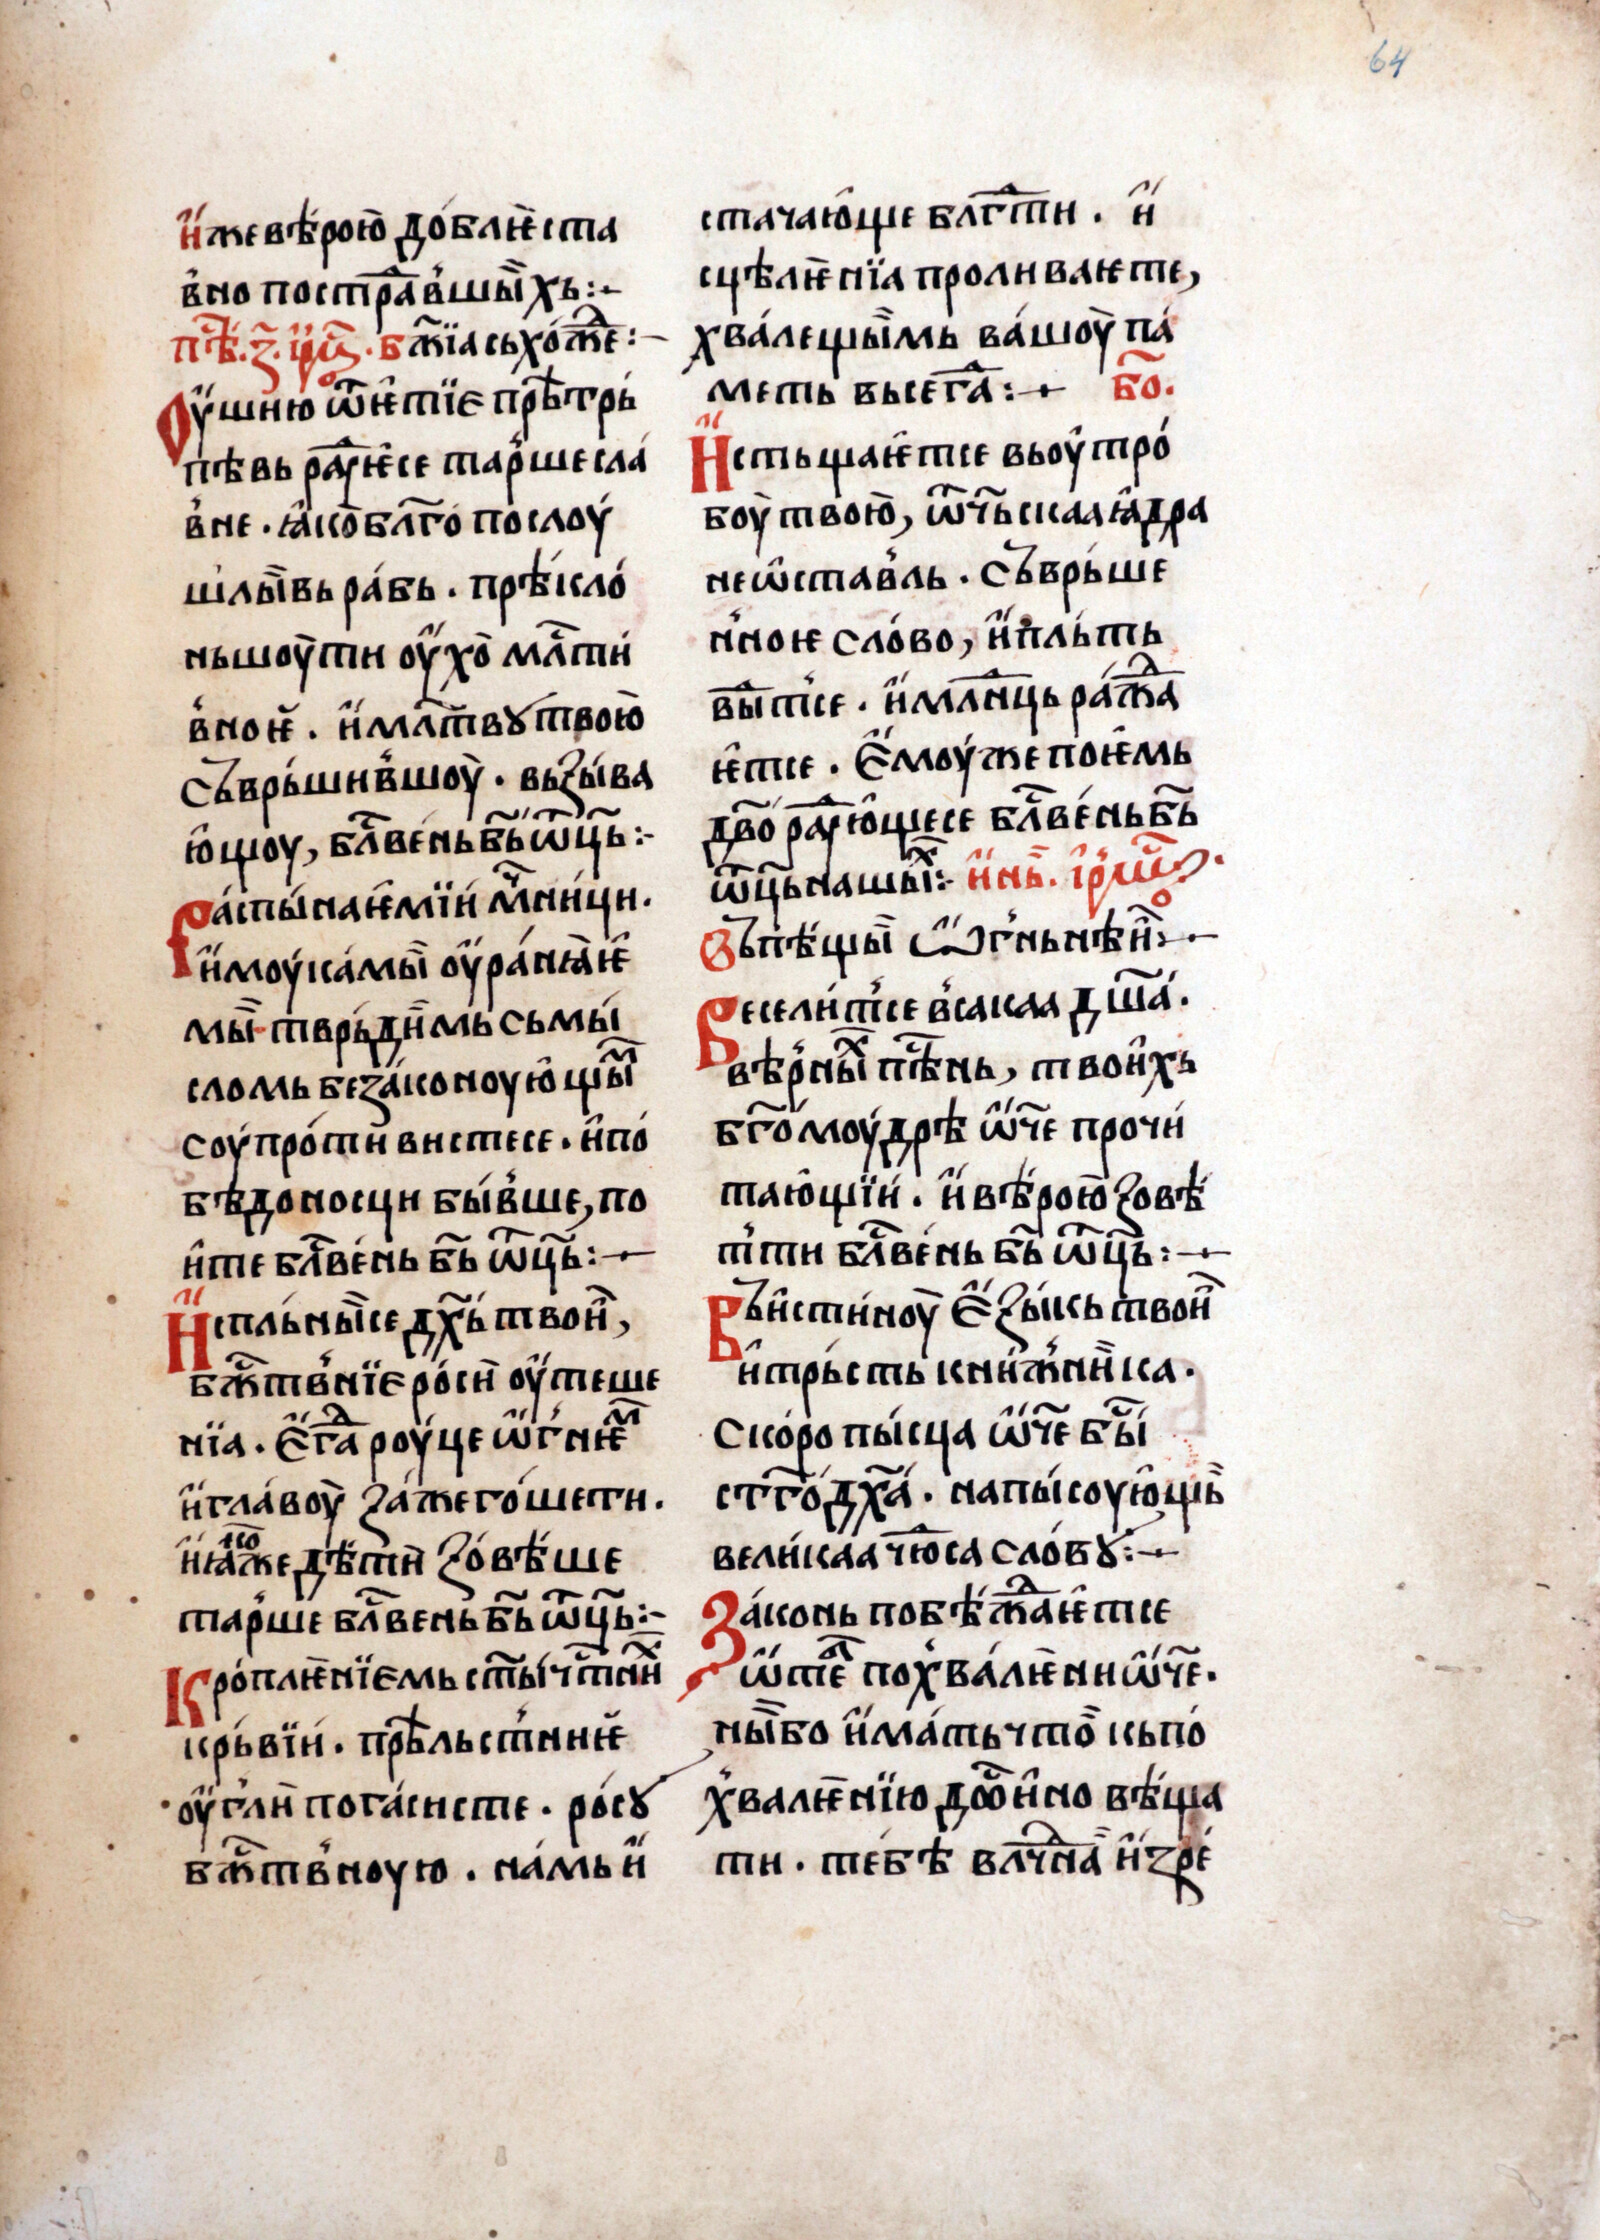 64
и҆́же вѣ́рою̀ до́блѥ̀ ста
в̾но постра́дав̾шы̏хь :-
пѣ́с. з҃. і҆рмо́с. бж҃їа сьхо́жде :-
Оу҆́шию ѿѥ҆тїе прѣ́трь
пѣвь ра́дꙋѥ҆се тар̾ше сла́
в̾не . ꙗ҆ко̀ бл҃го́ послоу́
шлы̏вь ра́бь . прѣ́кло́
ньшоу̀ти оу҆́хо̀ мл҃сти́
в̾ноѥ̀ . и҆́ мл҃твꙋ твою̀
съврь́шив̾шоу̀ . вьзы́ва
ю҆щоу, бл҃ве́нь б҃ь ѿц҃ь :-
Ра́спы́наѥ҆мїи́ м҃чни́ци .
и҆́ моу́камы̏ оу҆́ра́нꙗѥ҆
мы̏ тврь́ди̏мь сьмы́
сломь беза́коноую҆щы̏м
соу́про́тивистесе . и҆ по́
бѣ́доносци бы́в̾ше, по
и҆те бл҃ве́нь б҃ь ѿц҃ь :-
И҆́спль́ны̏се дх҃ь́ твои̏,
бж҃тв̾нїе ро́си̏ оу҆́теше
нїа . Е҆́гда роу́це ѿ́г̾нѥм
и҆́ гла́воу̀ за́жего́шети .
и҆́ ꙗ҆коже дѣ́ти̏ зо́вѣ́ше
тар̾ше бл҃венъ́ б҃ь ѿц҃ь :-
Кро́плѥ̀нїемь ст҃ы́ чⷭ҇тни̏х
крь́вїи́ . прѣ́льст̾ниѥ̏
оу҆́гли̏ пога́систе . ро́сꙋ
бж҃тв̾ноую . на́мь и҆́
стачаю҆ще бл҃гдти . и҆́
сцѣлѥ̀нїа проливаѥте,
хва́лещы̏мь ва́шоу̀ па́
меть вьсегда :- бо҃.
И҆́стьщаѥ҆тсе вьоу҆тро́
боу̀ твою̀, ѿч҃ьскаа ꙗ҆́дра
не ѡ҆став̾ль . съврь́ше
н̾ноѥ сло́во, и҆́ пль́ть
быт̾се . и҆́ мл҃днць ра́жда
ѥ҆тсе . Е҆́моу́же поѥ҆мь
дв҃о ра́дꙋю҆щесе бл҃ве́нь б҃ь
ѿц҃ь нашы̏х :- и҆́нь. і҆рмо́с .
Въ пѣ́щы̏ ѡ҆́г̾ньнѣи̏ :-
Весели́т̾се в̾сакаа дш҃а́ .
вѣ́р̾ны̏х пѣ́снь, твои҆хь
бг҃о́моу́дрѣ ѡ҆́ч҃е прочи́
таю҆щїи́ . и҆́ вѣ́рою̀ зовѣ́
т̾ти бл҃ве́нь б҃ь ѿц҃ь :-
Въи҆сти́ноу̀ Е҆́зы́кь твои̏
и҆ трь́сть кни́ж̾ни̏ка .
ско́ро пы́сца ѡ҆́ч҃е бы́с
ст҃го́ дх҃а́ . напы́соую҆щь̏
вели́каа чюдса сло́вꙋ :-
За́конь побѣ́ждаѥ҆тсе
ѿ́ тебе пох̾ва́лѥ̀ни ѡ҆́ч҃е .
ны̏ бо и҆́ма́ть что̀ кьпо́
х̾валѥ̀нїю досто́и҆но вѣ́ща
ти . те́бѣ влчдна̏ и҆́зре́